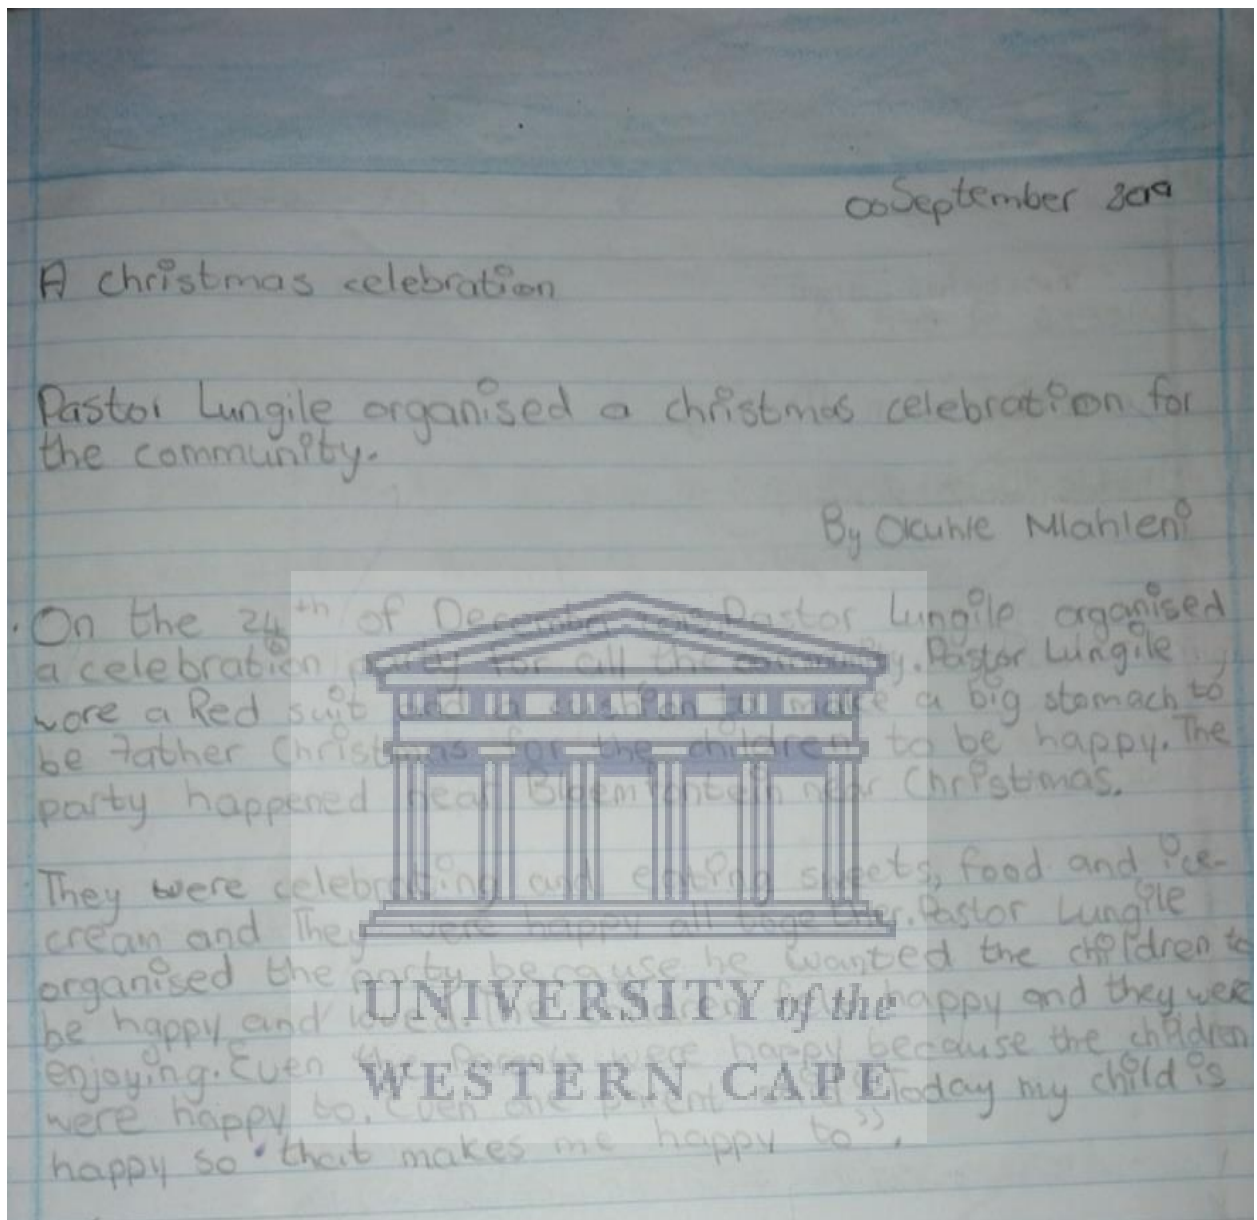 September 2019
A christmas celebration
Pastor Lungile organised a christmas celebration for
the community.
By Okuhle Mlahleni
On the 24th of December Pastor Lungile organised
a celebration party for all the community. Pastor Lungile
wore a Red suit and a cushion to make a big stomach to
be Father Christmas for the children to be happy. The
party happened near Bloemfontein near Christmas.
They were celebrating and eating sweets, food and ice-
cream and They were happy all together. Pastor Lungile
organised the party because he wanted the children to
be happy and loved. happy and they were
enjoying. Even the Parents were happy because the children
were happy to. Even one parent Today my child is
happy so that makes me happy to".
UNIVERSITY of the
WESTERN CAPE